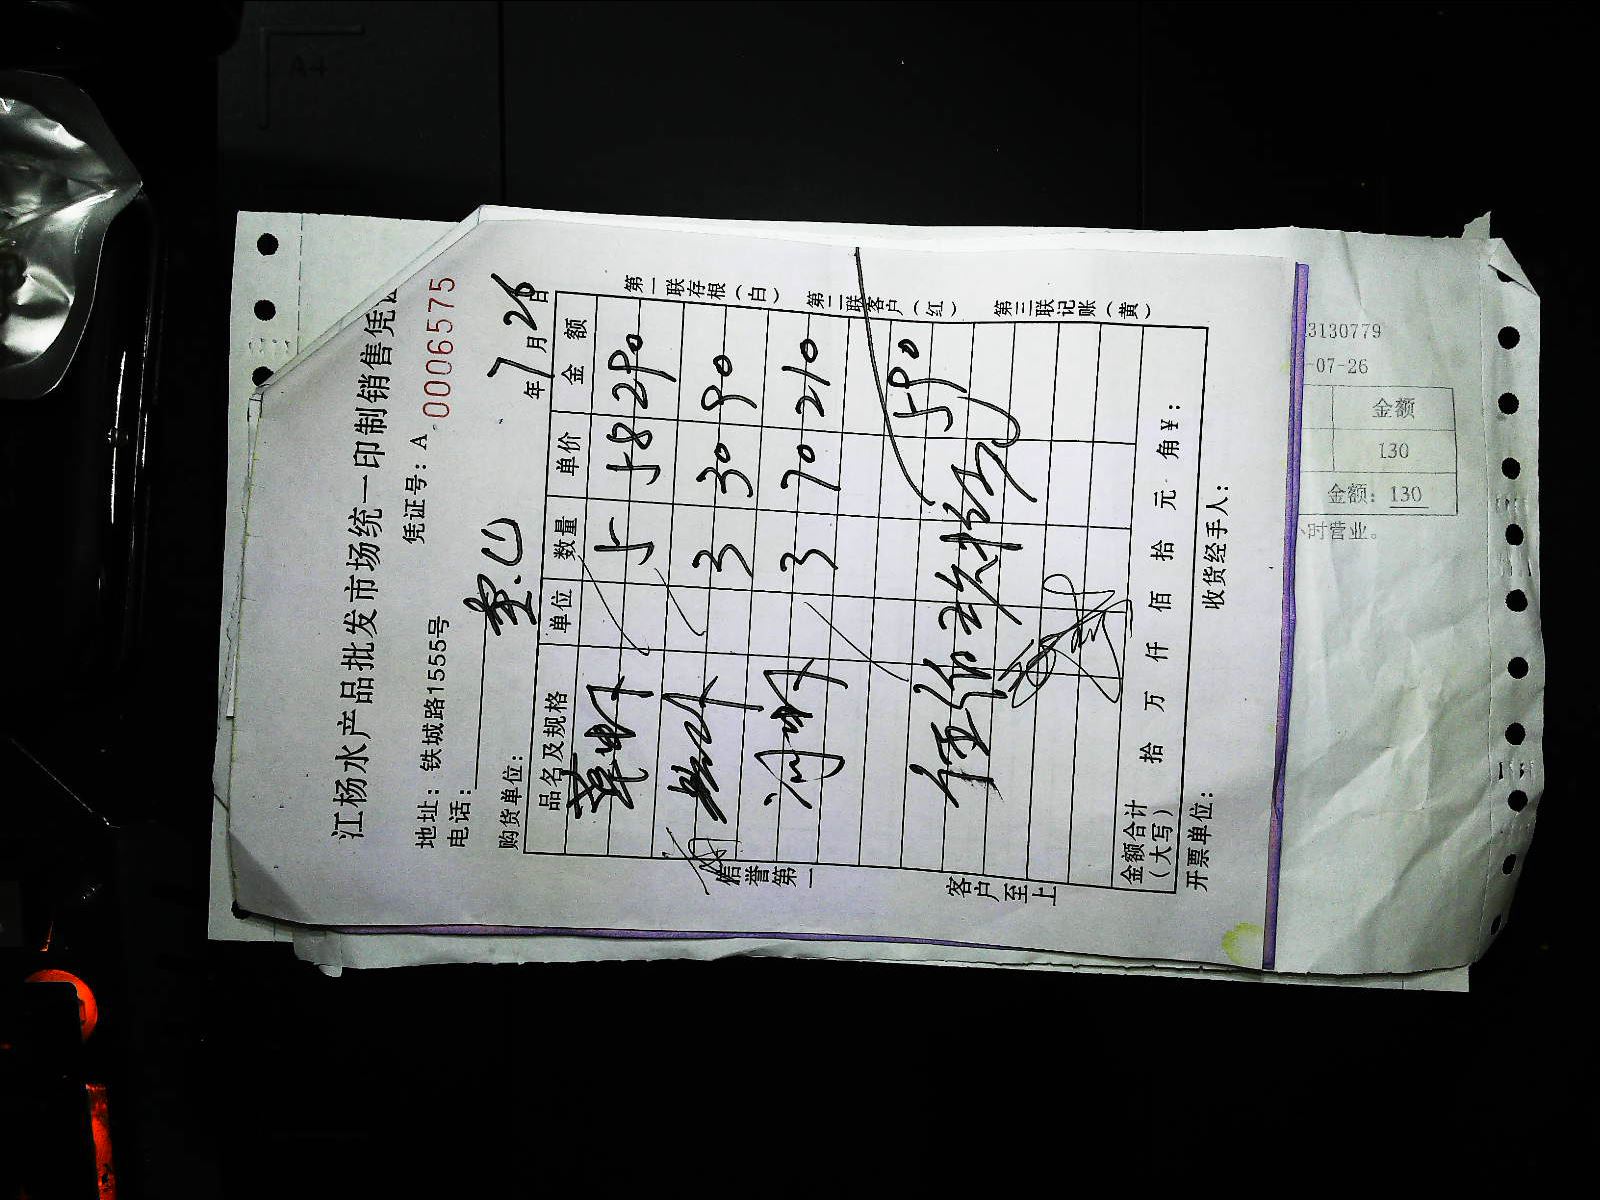 江杨水产品批发市场统一印制销售凭
地址：铁城路1555号 凭证号：A 0006575
电话：
购货单位： 年 7 月 26 日
品名及规格 单位 数量 单价 金额
草虾 5 58 290
3 30 90
河虾 3 70 210
590
伍佰玖拾元
金额合计（大写） 拾 万 仟 佰 拾 元 角 ¥：
开票单位： 收货经手人：
信誉第一 客户至上
第一联存根（白） 第二联客户（红） 第三联记账（黄）
3130779
-07-26
金额
130
金额：130
小时营业。